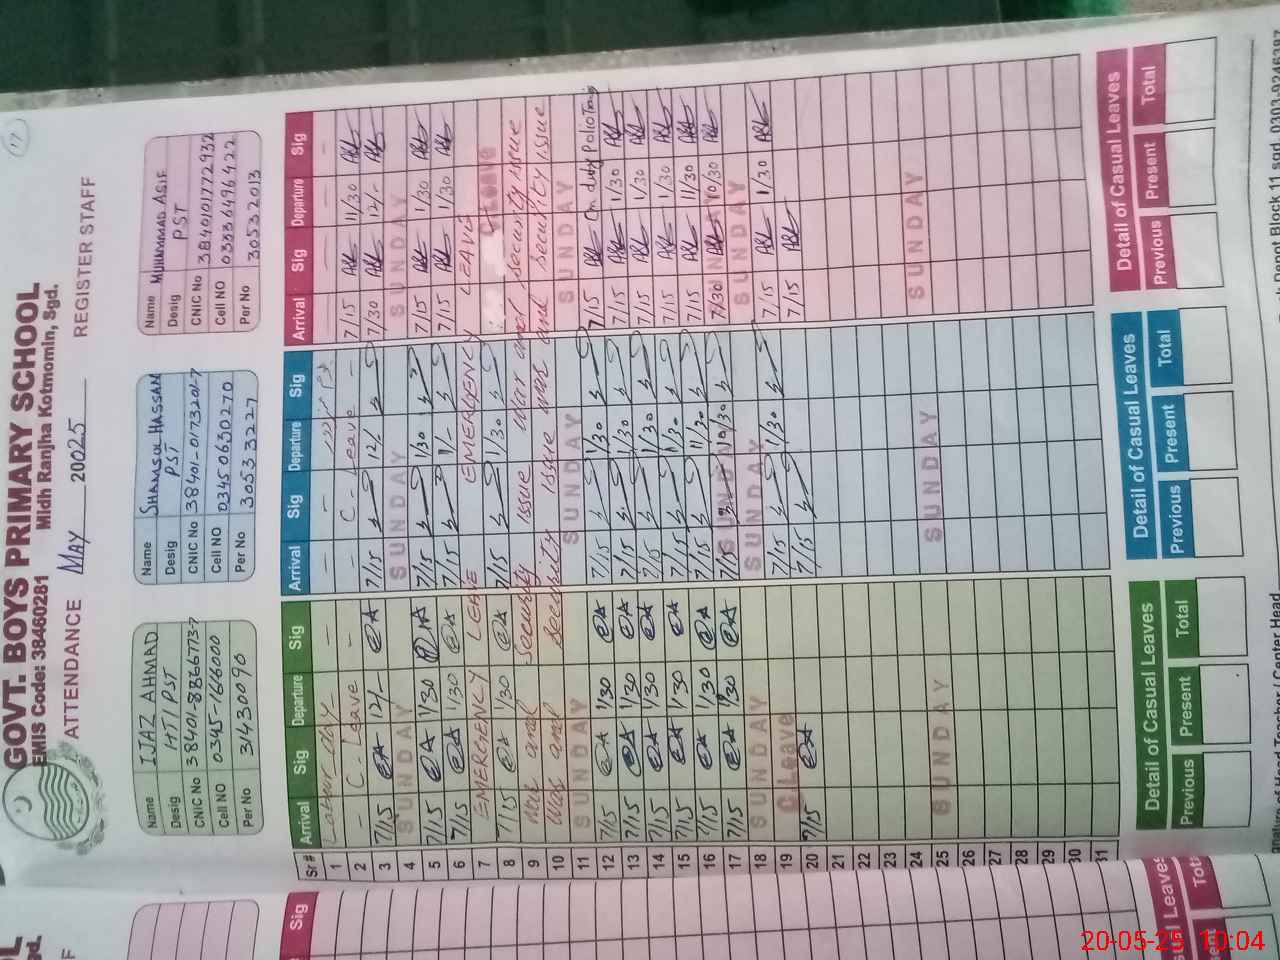 GOVT. BOYS PRIMARY SCHOOL
EMIS Code: 38460281 Midh Ranjha Kotmomin, Sgd.
ATTENDANCE MAY 20025 REGISTER STAFF
17
Name IJAZ AHMAD
Desig HT/PST
CNIC No 38401-8366773-7
Cell NO 0345-7666000
Per No 31430090
Name SHAMSUL HASSAN
Desig PST
CNIC No 38401-0173201-7
Cell NO 0345 0630270
Per No 30533227
Name MUHAMMAD ASIF
Desig PST
CNIC No 3840101772932
Cell NO 03336496422
Per No 30532013
Sr# Arrival Sig Departure Sig Arrival Sig Departure Sig Arrival Sig Departure Sig
1 Labour day 7/15 11/30
2 - C. Leave - - C. Leave - 7/30 12/-
3 7/15 12/- 7/15 12/-
4 SUNDAY SUNDAY SUNDAY
5 7/15 1/30 7/15 1/30 7/15 1/30
6 7/15 1/30 7/15 1/- 7/15 1/30
7 EMERGENCY LEAVE EMERGENCY LEAVE
8 7/15 1/30 7/15 1/30 C Leave
9 war and Security issue war and security issue
10 was and Security issue was and security issue
11 SUNDAY SUNDAY SUNDAY
12 7/15 1/30 7/15 1/30 7/15 On duty Polio
13 7/15 1/30 7/15 1/30 7/15 1/30
14 7/15 1/30 7/15 1/30 7/15 1/30
15 7/15 1/30 7/15 1/30 7/15 1/30
16 7/15 1/30 7/15 11/30 7/15 11/30
17 7/15 1/30 7/15 SUNDAY 10/30 7/30 SUNDAY 10/30
18 SUNDAY SUNDAY SUNDAY
19 C Leave 7/15 1/30 7/15 1/30
20 7/15 7/15 7/15
21
22
23
24
25 SUNDAY SUNDAY SUNDAY
26
27
28
29
30
31
Detail of Casual Leaves Detail of Casual Leaves Detail of Casual Leaves
Previous Present Total Previous Present Total Previous Present Total
Head Teacher / Center Head
Block 11 sgd. 0303-9246387
Sig
20-05-25 10:04